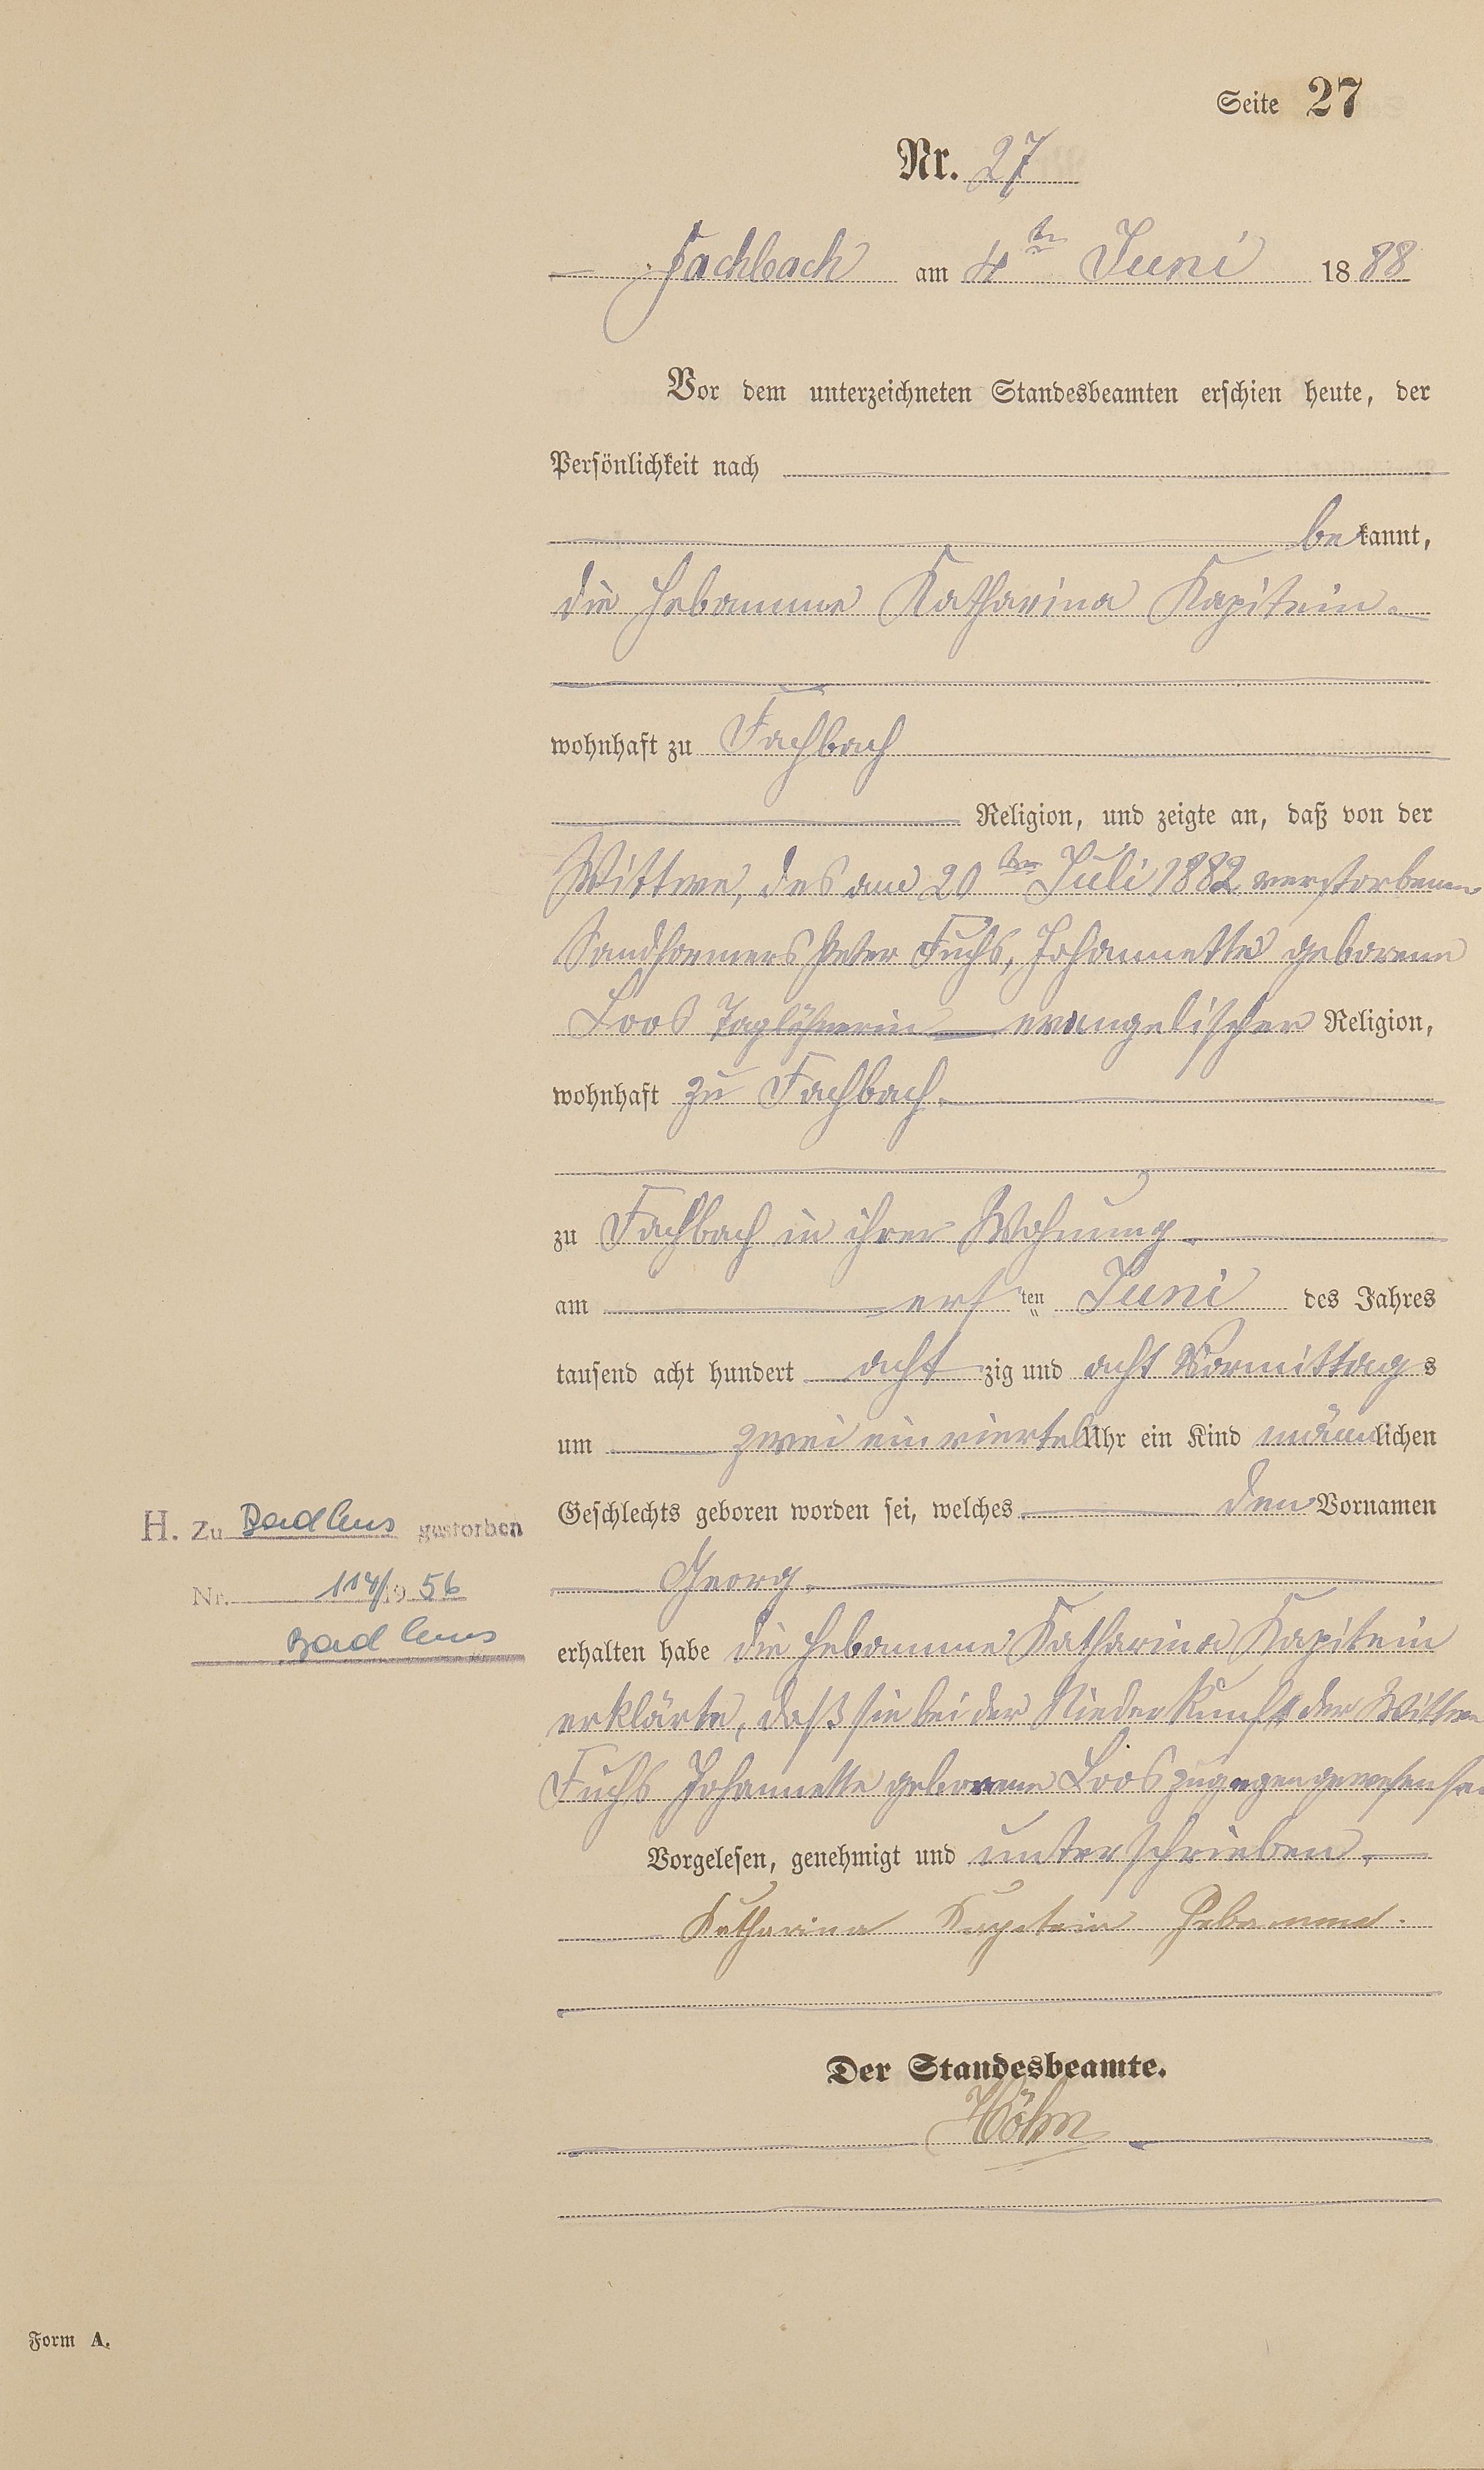 Seite 27
Nr. 27
Fachbach am 4ten Juni 1888
Vor dem unterzeichneten Standesbeamten erschien heute, der
Persönlichkeit nach
bekannt,
die Hebamme Katharina Kapitein.
wohnhaft zu Fachbach
Religion, und zeigte an, daß von der
Wittwe, des am 20ten Juli 1882 verstorbenen
Sandformers Peter Fuchs, Johannette geborene
Loos Taglöhnerin evangelischer Religion,
wohnhaft zu Fachbach.
zu Fachbach in ihrer Wohnung.
am ersten Juni des Jahres
tausend acht hundert achtzig und acht Vormittags
um zwei ein viertel Uhr ein Kind männlichen
Geschlechts geboren worden sei, welches den Vornamen
Georg.
erhalten habe die Hebamme Katharina Kapitein
erklärte, daß sie bei der Niederkunft der Wittwe
Fuchs Johannette geborene Loos zugegen gewesen sei
Vorgelesen, genehmigt und unterschrieben.
Katharina Kapitein Hebamme.
Der Standesbeamte.
H. Zu Bad Ems gestorben
Nr. 114/1956
Bad Ems
Form A.